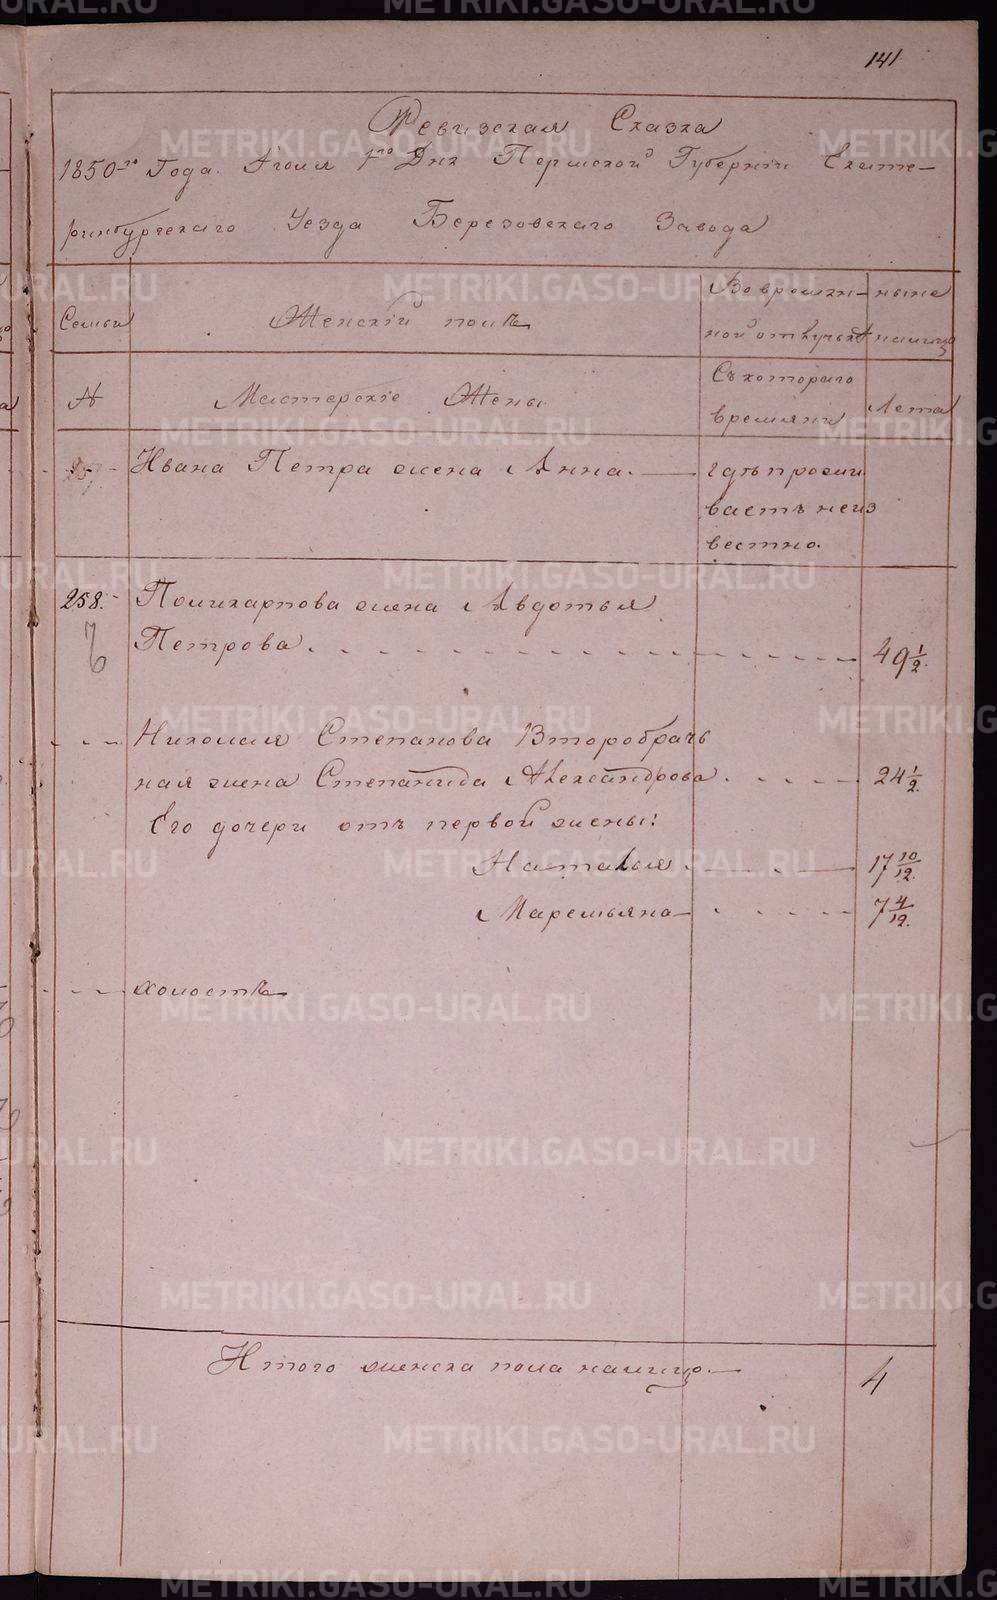 141
Ревизская Сказка
1850го Года. Июля 1го Дня Пермской Губернiи Екате-
ринбургскаго Уезда Березовскаго Завода
Семьи
Женскiй полъ
Во времян-
ной отлучке
ныне
налицо
№
Мастерскiе Жены
Съ котораго
времяни
Лета
257
Ивана Петра жена Анна.
где прожи
ваетъ неиз
вестно.
258.
Поликарпова жена Авдотья
Петрова
49 1/2
Николая Степанова Второбрачь
ная жена Степанида Александрова
24 1/2
Его дочери отъ первой жены:
Наталья
17 10/12
Маремьяна
7 4/12
холостъ
Итого женска пола налицо.
4
METRIKI.GASO-URAL.RU